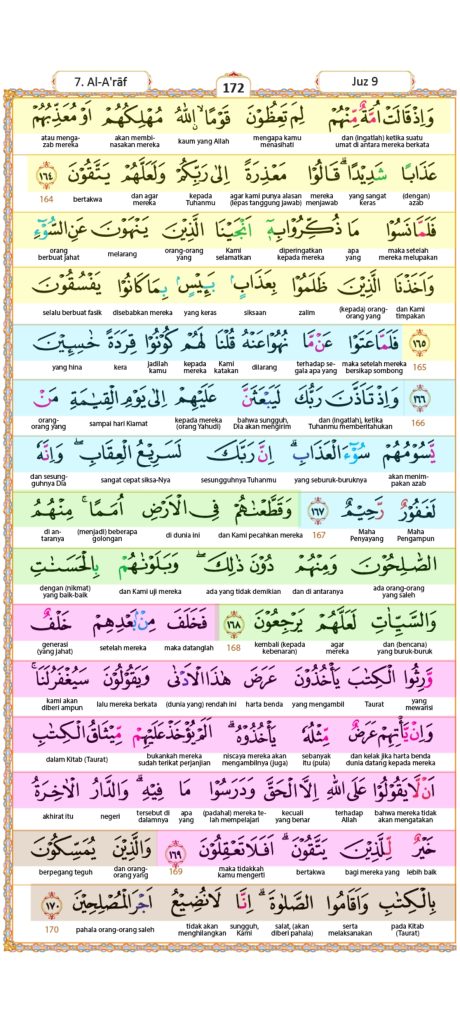 7. Al-A'rāf
172
Juz 9
وَاِذْ قَالَتْ اُمَّةٌ مِّنْهُمْ لِمَ تَعِظُوْنَ قَوْمًاۙ ۨاللّٰهُ مُهْلِكُهُمْ اَوْ مُعَذِّبُهُمْ
atau menga- akan membi- kaum yang Allah mengapa kamu dan (ingatlah) ketika suatu
zab mereka nasakan mereka menasihati umat di antara mereka berkata
عَذَابًا شَدِيْدًاۗ قَالُوْا مَعْذِرَةً اِلٰى رَبِّكُمْ وَلَعَلَّهُمْ يَتَّقُوْنَ ﴿١٦٤﴾
164 bertakwa dan agar kepada agar kami punya alasan mereka yang sangat (dengan)
mereka Tuhanmu (lepas tanggung jawab) menjawab keras azab
فَلَمَّا نَسُوْا مَا ذُكِّرُوْا بِهٖٓ اَنْجَيْنَا الَّذِيْنَ يَنْهَوْنَ عَنِ السُّوْۤءِ
orang melarang orang-orang Kami diperingatkan apa maka setelah
berbuat jahat yang selamatkan kepada mereka yang mereka melupakan
وَاَخَذْنَا الَّذِيْنَ ظَلَمُوْا بِعَذَابٍۢ بَـِٔيْسٍۢ بِمَا كَانُوْا يَفْسُقُوْنَ
selalu berbuat fasik disebabkan mereka yang keras siksaan zalim (kepada) orang- dan Kami
orang yang timpakan
﴿١٦٥﴾ فَلَمَّا عَتَوْا عَنْ مَّا نُهُوْا عَنْهُ قُلْنَا لَهُمْ كُوْنُوْا قِرَدَةً خٰسِـِٕيْنَ
yang hina kera jadilah kepada Kami dilarang terhadap se- maka setelah mereka 165
kamu mereka katakan gala apa yang bersikap sombong
﴿١٦٦﴾ وَاِذْ تَاَذَّنَ رَبُّكَ لَيَبْعَثَنَّ عَلَيْهِمْ اِلٰى يَوْمِ الْقِيٰمَةِ مَنْ
orang- sampai hari Kiamat kepada mereka bahwa sungguh, dan (ingatlah), ketika 166
orang yang (orang Yahudi) Dia akan mengirim Tuhanmu memberitahukan
يَّسُوْمُهُمْ سُوْۤءَ الْعَذَابِۗ اِنَّ رَبَّكَ لَسَرِيْعُ الْعِقَابِۖ وَاِنَّهٗ
dan sesung- sangat cepat siksa-Nya sesungguhnya Tuhanmu yang seburuk-buruknya akan menim-
guhnya Dia pakan azab
لَغَفُوْرٌ رَّحِيْمٌ ﴿١٦٧﴾ وَقَطَّعْنٰهُمْ فِى الْاَرْضِ اُمَمًاۚ مِنْهُمُ
di an- (menjadi) beberapa di dunia ini dan Kami pecahkan mereka 167 Maha Maha
taranya golongan Penyayang Pengampun
الصّٰلِحُوْنَ وَمِنْهُمْ دُوْنَ ذٰلِكَۖ وَبَلَوْنٰهُمْ بِالْحَسَنٰتِ
dengan (nikmat) dan Kami uji mereka ada yang tidak demikian dan di antaranya ada orang-orang
yang baik-baik yang saleh
وَالسَّيِّاٰتِ لَعَلَّهُمْ يَرْجِعُوْنَ ﴿١٦٨﴾ فَخَلَفَ مِنْۢ بَعْدِهِمْ خَلْفٌ
generasi setelah mereka maka datanglah 168 kembali (kepada agar dan (bencana)
(yang jahat) kebenaran) mereka yang buruk-buruk
وَّرِثُوا الْكِتٰبَ يَأْخُذُوْنَ عَرَضَ هٰذَا الْاَدْنٰى وَيَقُوْلُوْنَ سَيُغْفَرُ لَنَاۚ
kami akan lalu mereka berkata (dunia yang) rendah ini harta benda yang mengambil Taurat yang
diberi ampun mewarisi
وَاِنْ يَّأْتِهِمْ عَرَضٌ مِّثْلُهٗ يَأْخُذُوْهُۗ اَلَمْ يُؤْخَذْ عَلَيْهِمْ مِّيْثَاقُ الْكِتٰبِ
dalam Kitab (Taurat) bukankah mereka niscaya mereka akan sebanyak dan kelak jika harta benda
sudah terikat perjanjian mengambilnya (juga) itu (pula) dunia datang kepada mereka
اَنْ لَّا يَقُوْلُوْا عَلَى اللّٰهِ اِلَّا الْحَقَّ وَدَرَسُوْا مَا فِيْهِۗ وَالدَّارُ الْاٰخِرَةُ
akhirat itu negeri tersebut di apa (padahal) mereka te- kecuali terhadap bahwa mereka tidak
dalamnya yang lah mempelajari yang benar Allah akan mengatakan
خَيْرٌ لِّلَّذِيْنَ يَتَّقُوْنَۗ اَفَلَا تَعْقِلُوْنَ ﴿١٦٩﴾ وَالَّذِيْنَ يُمَسِّكُوْنَ
berpegang teguh dan orang- 169 maka tidakkah bertakwa bagi mereka yang lebih baik
orang yang kamu mengerti
بِالْكِتٰبِ وَاَقَامُوا الصَّلٰوةَۗ اِنَّا لَا نُضِيْعُ اَجْرَ الْمُصْلِحِيْنَ ﴿١٧٠﴾
170 pahala orang-orang saleh tidak akan sungguh, salat, (akan serta pada Kitab
menghilangkan Kami diberi pahala) melaksanakan (Taurat)